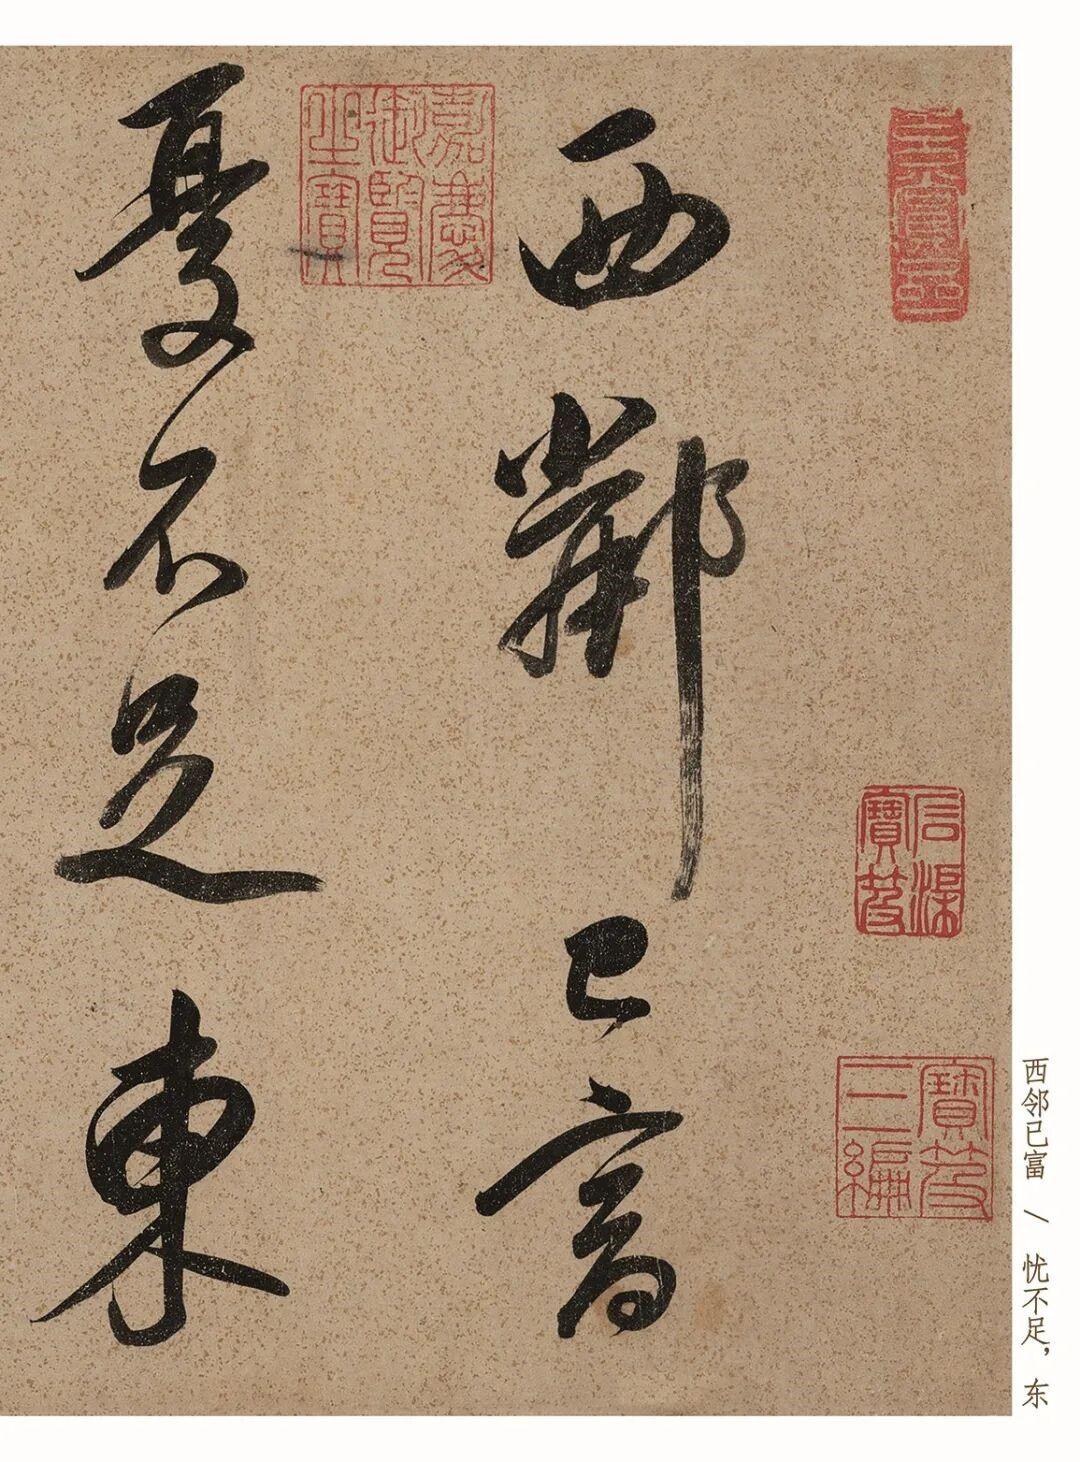 西鄰已富
憂不足東
嘉慶御覽之寶
石渠寶笈
寶笈三編
西邻已富 / 忧不足，东